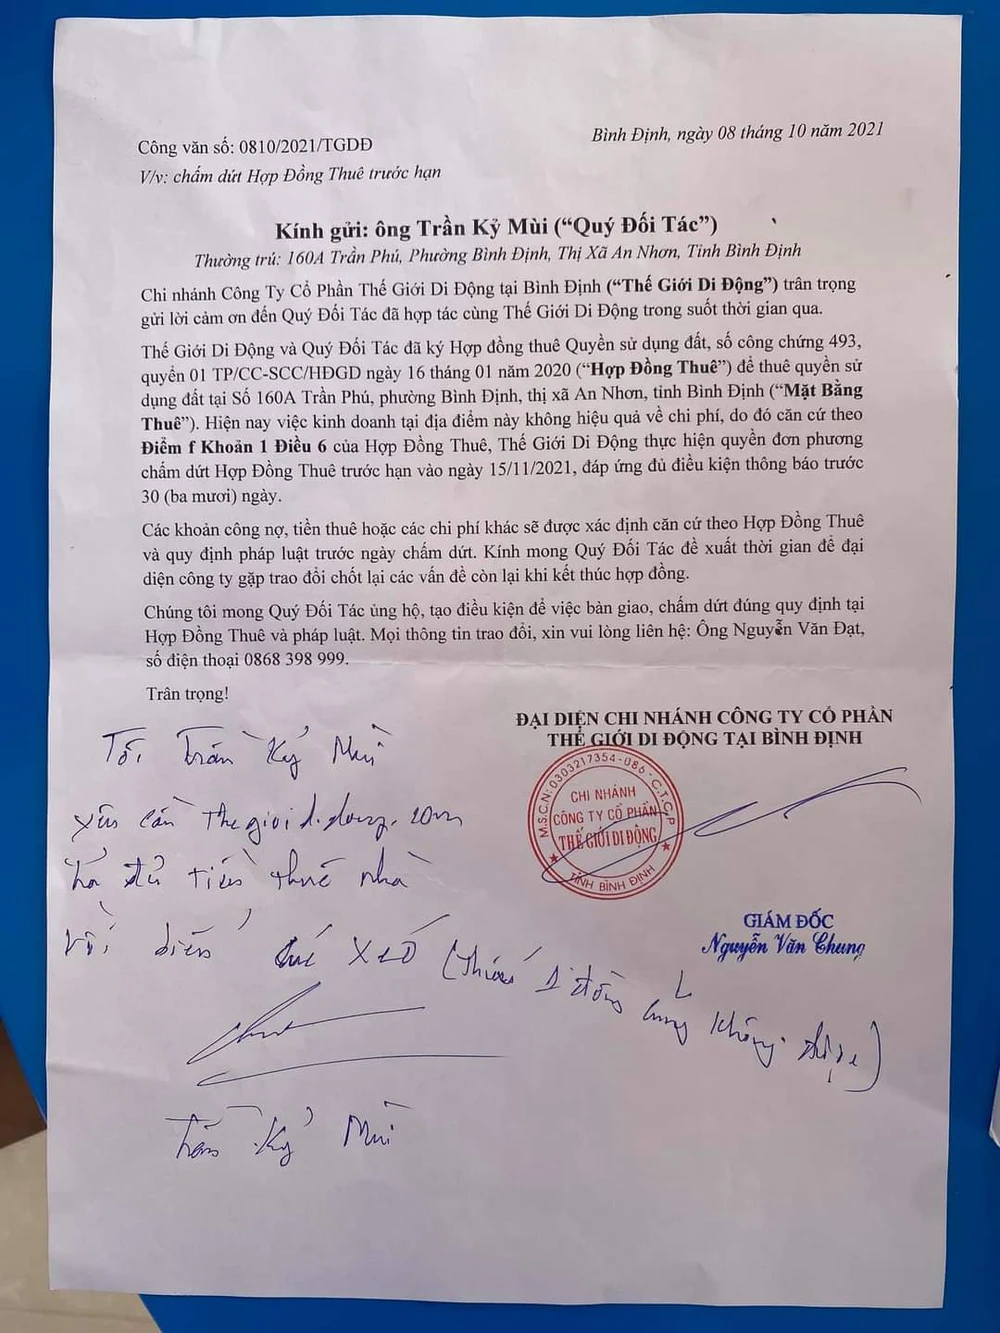 Công văn số: 0810/2021/TGDĐ
Bình Định, ngày 08 tháng 10 năm 2021
V/v: chấm dứt Hợp Đồng Thuê trước hạn
Kính gửi: ông Trần Kỷ Mùi (“Quý Đối Tác”)
Thường trú: 160A Trần Phú, Phường Bình Định, Thị Xã An Nhơn, Tỉnh Bình Định
Chi nhánh Công Ty Cổ Phần Thế Giới Di Động tại Bình Định (“Thế Giới Di Động”) trân trọng
gửi lời cảm ơn đến Quý Đối Tác đã hợp tác cùng Thế Giới Di Động trong suốt thời gian qua.
Thế Giới Di Động và Quý Đối Tác đã ký Hợp đồng thuê Quyền sử dụng đất, số công chứng 493,
quyển 01 TP/CC-SCC/HĐGD ngày 16 tháng 01 năm 2020 (“Hợp Đồng Thuê”) để thuê quyền sử
dụng đất tại Số 160A Trần Phú, phường Bình Định, thị xã An Nhơn, tỉnh Bình Định (“Mặt Bằng
Thuê”). Hiện nay việc kinh doanh tại địa điểm này không hiệu quả về chi phí, do đó căn cứ theo
Điểm f Khoản 1 Điều 6 của Hợp Đồng Thuê, Thế Giới Di Động thực hiện quyền đơn phương
chấm dứt Hợp Đồng Thuê trước hạn vào ngày 15/11/2021, đáp ứng đủ điều kiện thông báo trước
30 (ba mươi) ngày.
Các khoản công nợ, tiền thuê hoặc các chi phí khác sẽ được xác định căn cứ theo Hợp Đồng Thuê
và quy định pháp luật trước ngày chấm dứt. Kính mong Quý Đối Tác đề xuất thời gian để đại
diện công ty gặp trao đổi chốt lại các vấn đề còn lại khi kết thúc hợp đồng.
Chúng tôi mong Quý Đối Tác ủng hộ, tạo điều kiện để việc bàn giao, chấm dứt đúng quy định tại
Hợp Đồng Thuê và pháp luật. Mọi thông tin trao đổi, xin vui lòng liên hệ: Ông Nguyễn Văn Đạt,
số điện thoại 0868 398 999.
Trân trọng!
ĐẠI DIỆN CHI NHÁNH CÔNG TY CỔ PHẦN
THẾ GIỚI DI ĐỘNG TẠI BÌNH ĐỊNH
M.S.C.N: 0303217354-086-C.T.C.P
CHI NHÁNH
CÔNG TY CỔ PHẦN
THẾ GIỚI DI ĐỘNG
TỈNH BÌNH ĐỊNH
GIÁM ĐỐC
Nguyễn Văn Chung
Tôi Trần Kỷ Mùi
yêu cầu thegioididong.com
trả đủ tiền thuê nhà
(thiếu 1 đồng cũng không được)
Trần Kỷ Mùi